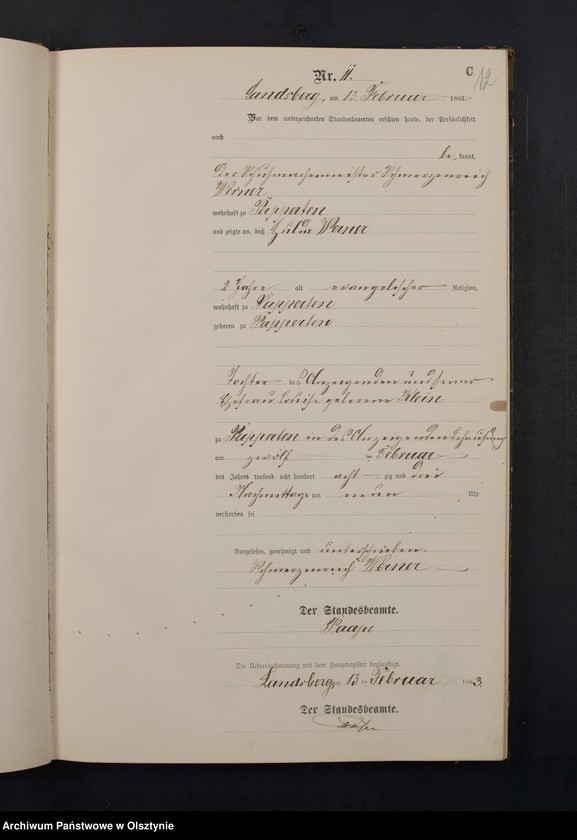 C.
12
Nr. 11.
Landsberg, am 13. Februar 1883.
Vor dem unterzeichneten Standesbeamten erschien heute, der Persönlichkeit
nach
be kannt,
der Schuhmachermeister Schmerzenreich
Werner
wohnhaft zu Papperten
und zeigte an, daß Hulda Werner
2 Jahre alt evangelischer Religion,
wohnhaft zu Papperten
geboren zu Papperten
Tochter des Anzeigenden und seiner
Ehefrau Louise geborene Klein
zu Papperten in des Anzeigenden Behausung
am zwölf ten Februar
des Jahres tausend acht hundert acht zig und drei
Nachmittags um neun Uhr
verstorben sei
Vorgelesen, genehmigt und unterschrieben.
Schmerzenreich Werner
Der Standesbeamte.
Die Uebereinstimmung mit dem Hauptregister beglaubigt.
Landsberg, am 13 ten Februar 1883.
Der Standesbeamte.
Archiwum Państwowe w Olsztynie